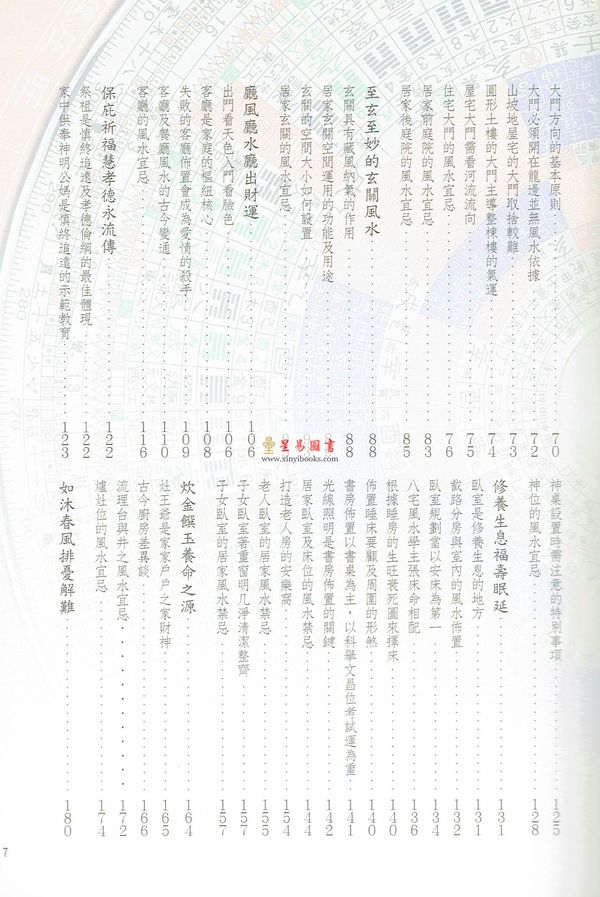 大門方向的基本原則 70
大門必須開在龍邊並無風水依據 72
山坡地屋宅的大門取捨較難 73
圓形土樓的大門主導整棟樓的氣運 74
屋宅大門需看河流流向 75
住宅大門的風水宜忌 76
居家前庭院的風水宜忌 83
居家後庭院的風水宜忌 85
至玄至妙的玄關風水 88
玄關具有藏風納氣的作用 88
居家玄關空間運用的功能及用途
玄關的空間大小如何設置
居家玄關的風水宜忌
廳風廳水廳出財運 106
出門看天色入門看臉色 106
客廳是家庭的樞紐核心 108
失敗的客廳佈置會成為愛情的殺手 109
客廳及餐廳風水的古今變通 110
客廳的風水宜忌 116
保庇祈福慧孝德永流傳 122
祭祖是慎終追遠及孝德倫綱的最佳體現 122
家中供奉神明公媽是慎終追遠的示範教育 123
星易圖書
www.xinyibooks.com
神桌設置時需注意的特別事項 125
神位的風水宜忌 128
修養生息福壽眠延 131
臥室是修養生息的地方 131
截路分房與室內的風水佈置 132
臥室規劃當以安床為第一 134
八宅風水學主張床命相配 136
根據睡房的生旺衰死圖來擇床 140
佈置睡床要顧及周圍的形煞 140
書房佈置以書桌為主，以科舉文昌位考試運為重 141
光線照明是書房佈置的關鍵 142
居家臥室及床位的風水禁忌 144
打造老人房的安樂窩 154
老人臥室的居家風水禁忌 155
子女臥室著重窗明几淨清潔整齊 157
子女臥室的居家風水禁忌 157
炊金饌玉養命之源 164
灶王爺是家家戶戶之家財神 165
古今廚房差異談 166
流理台與井之風水宜忌 172
爐灶位的風水宜忌 174
如沐春風排憂解難 180
7